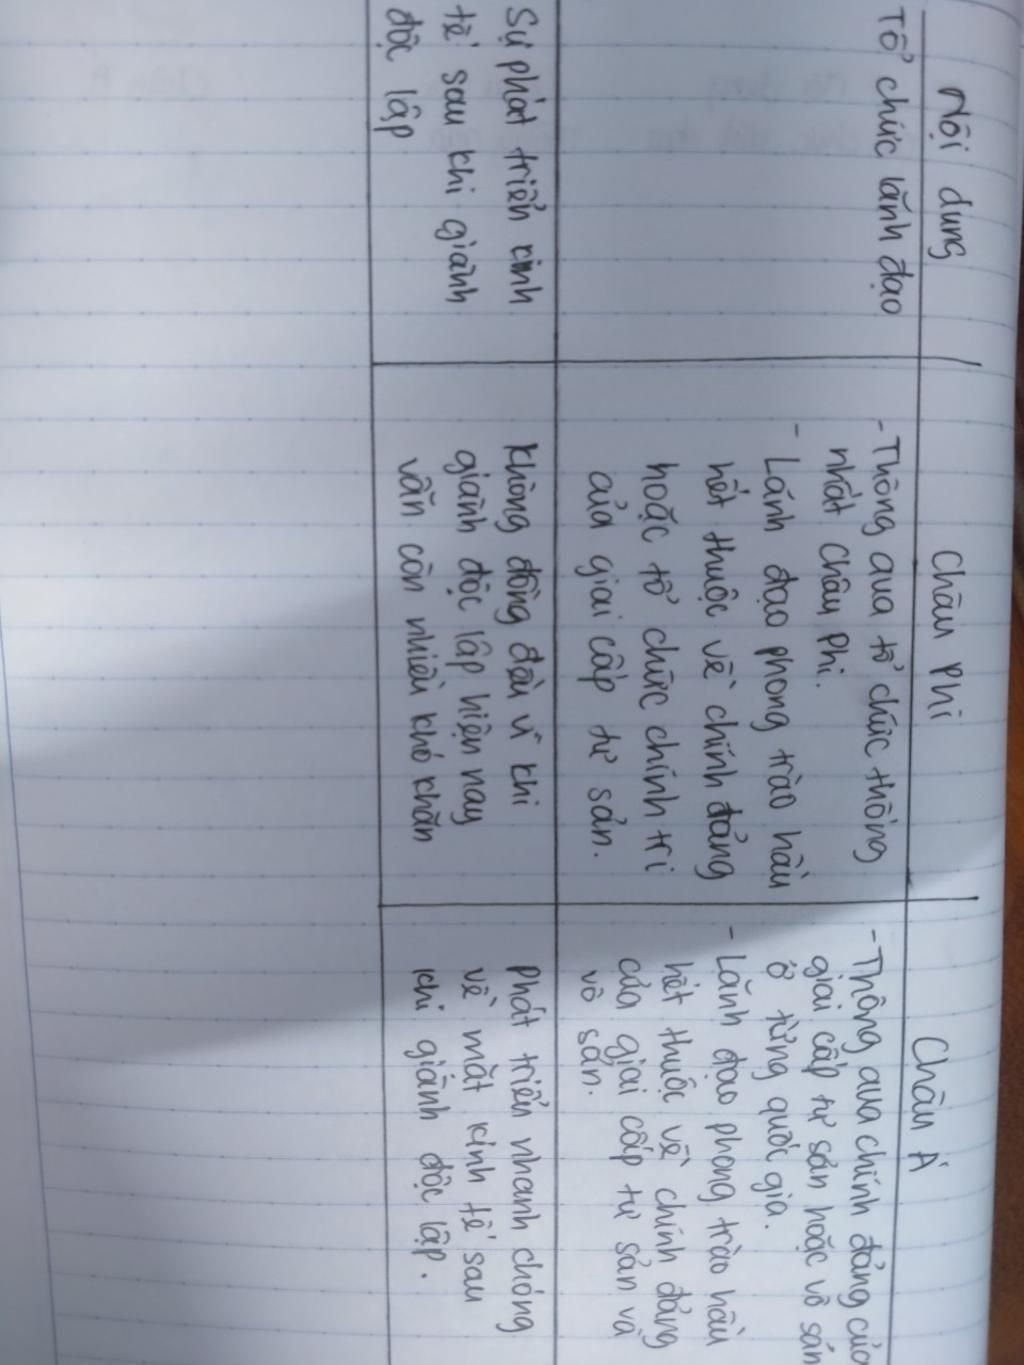 Nội dung
Châu Phi
Châu Á
Tổ chức lãnh đạo
- Thông qua tổ chức thống
nhất Châu Phi.
- Lánh đạo phong trào hầu
hết thuộc về chính đảng
hoặc tổ chức chính trị
của giai cấp tư sản.
- Thông qua chính đảng của
giai cấp tư sản hoặc vô sản
ở từng quốc gia.
- Lãnh đạo phong trào hầu
hết thuộc về chính đảng
của giai cấp tư sản và
vô sản.
Sự phát triển kinh
tế sau khi giành
độc lập
Không đồng đều vì khi
giành độc lập hiện nay
vẫn còn nhiều khó khăn
Phát triển nhanh chóng
về mặt kinh tế sau
khi giành độc lập.